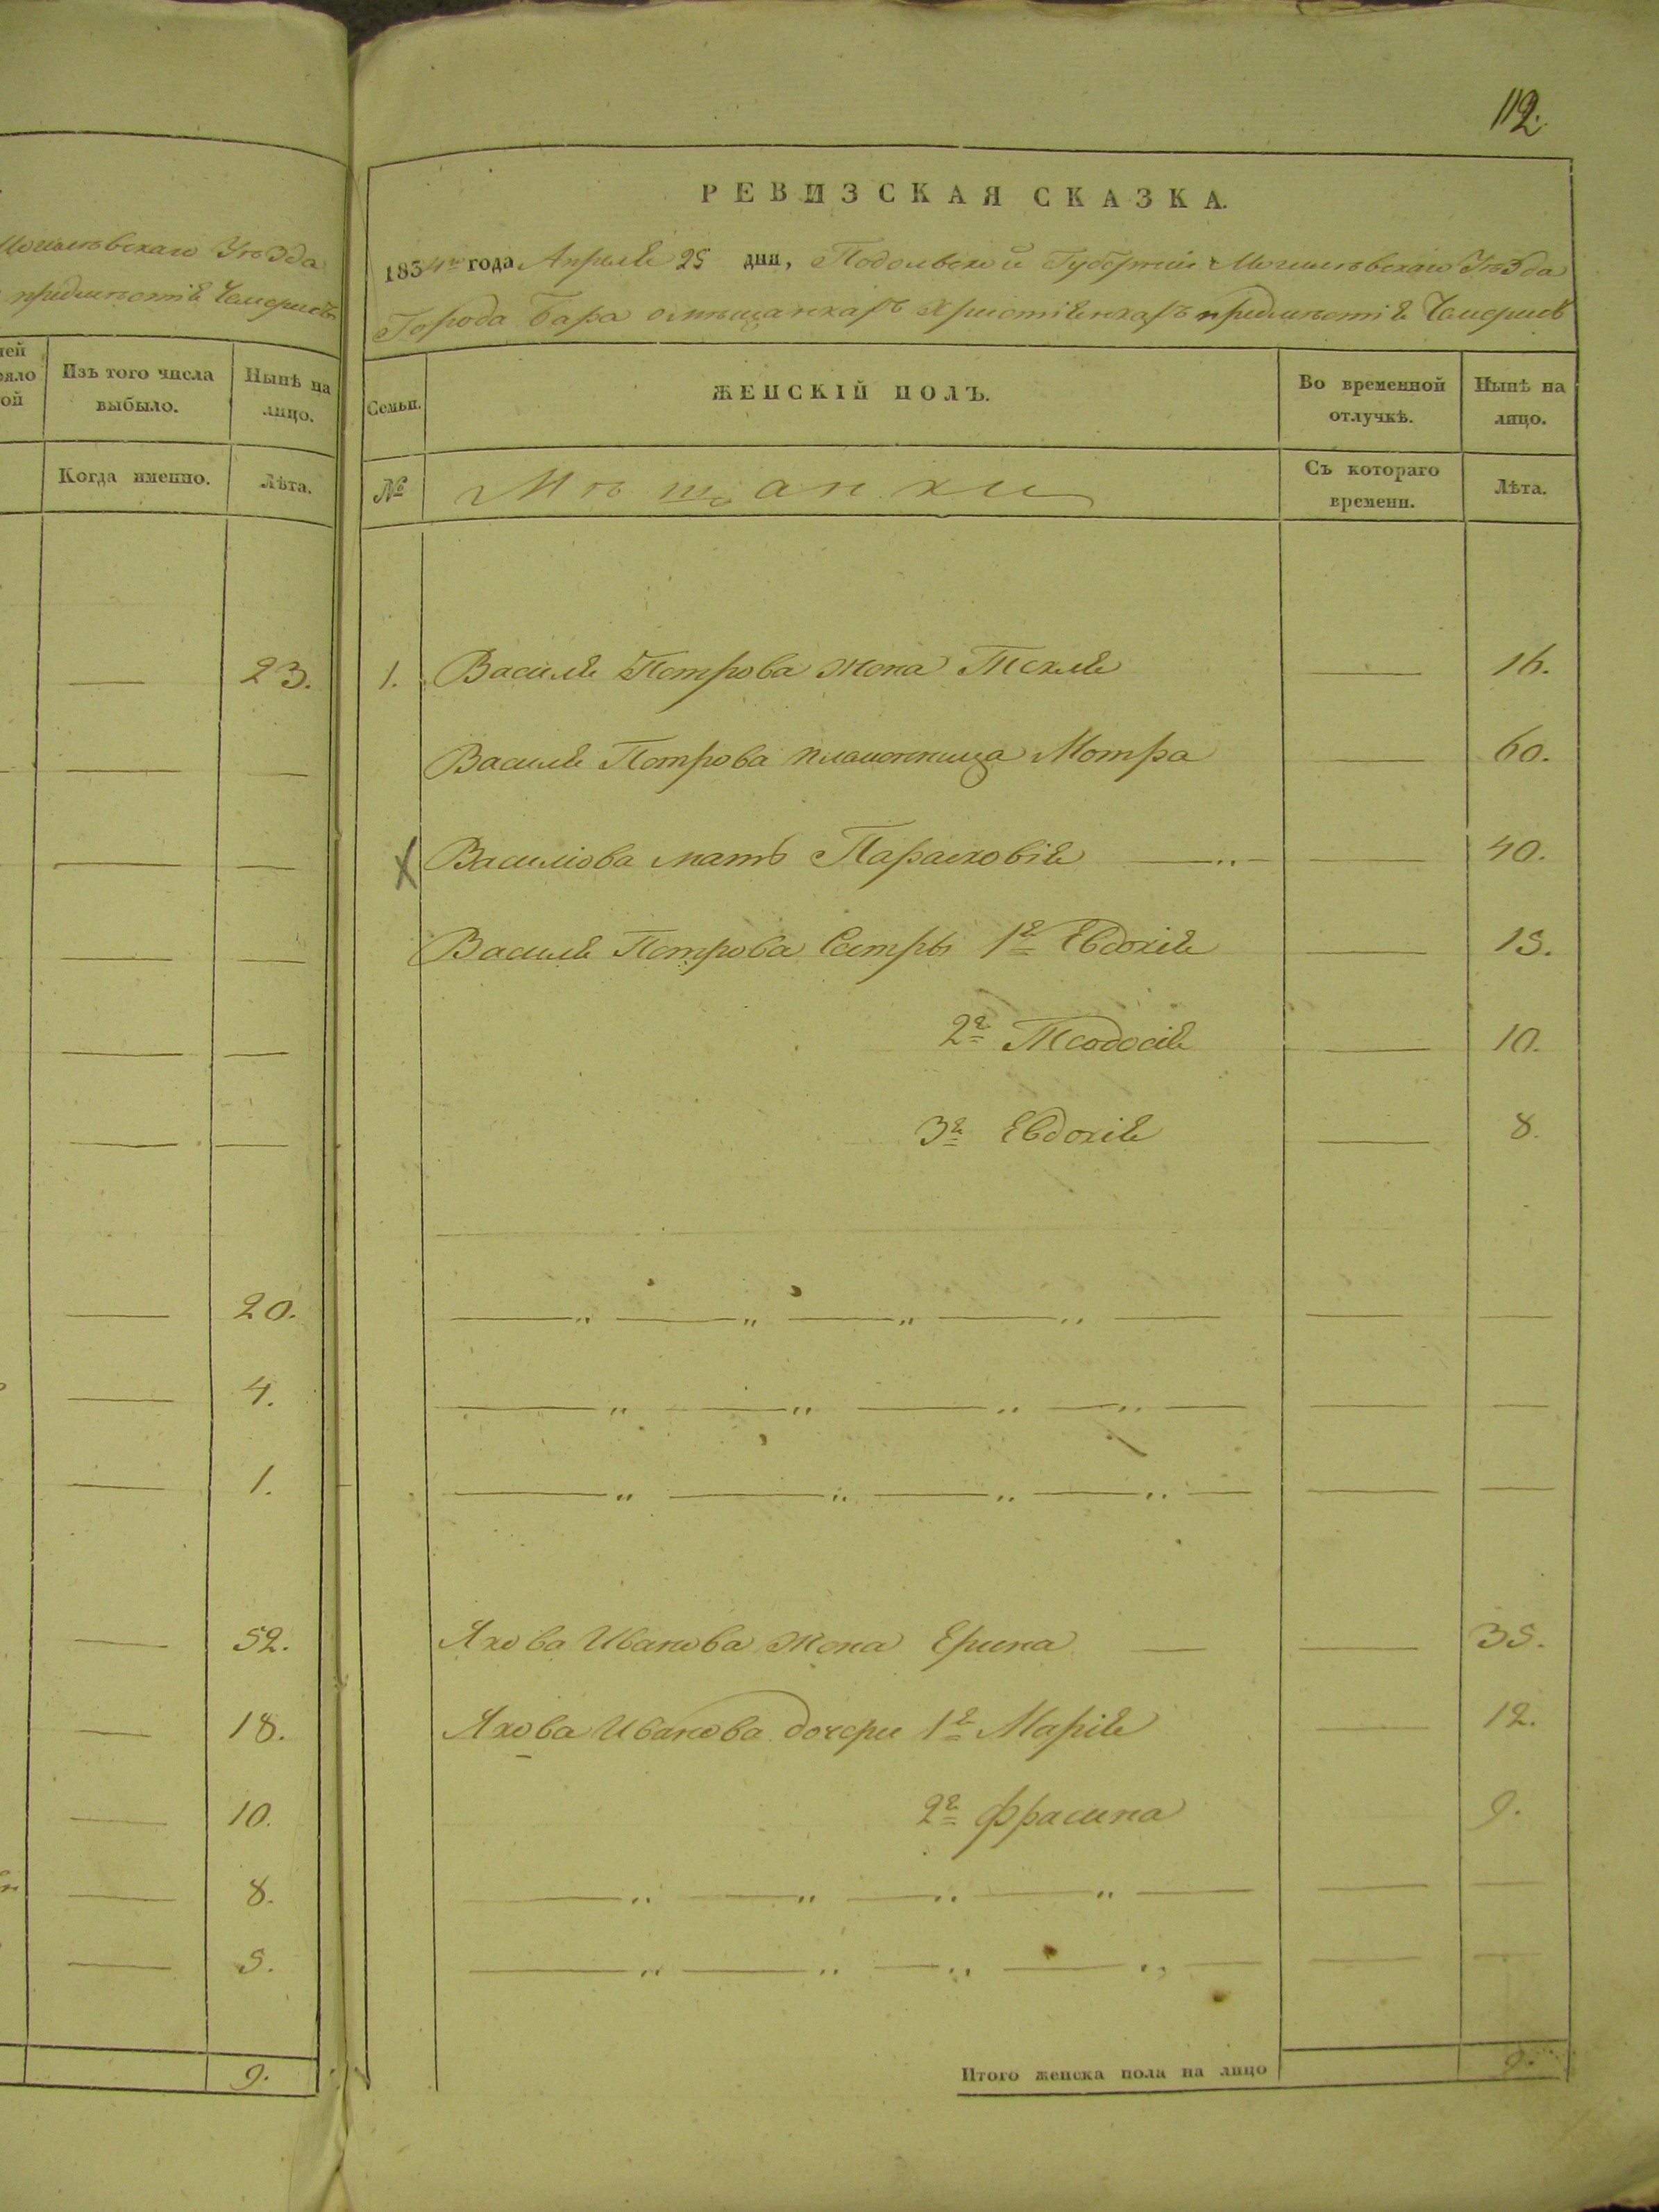 Могилевскаго Уѣзда
предмѣстія Чемерисъ
ней
ояло
ой
Изъ того числа
выбыло.
Нынѣ на
лицо.
Когда именно.
Лѣта.
— 23.
— —
— —
— —
— —
— —
— 20.
— 4.
— 1.
— 52.
— 18.
— 10.
— 8.
— 5.
9.
112.
РЕВИЗСКАЯ СКАЗКА.
1834го года Апреля 25 дня, Подольской Губерніи Могилевскаго Уѣзда
Города Бара о мѣщанкахъ Христіянкахъ предмѣстія Чемерисъ
Семьи.
ЖЕНСКІЙ ПОЛЪ.
Во временной
отлучкѣ.
Нынѣ на
лицо.
№
Мѣщанки
Съ котораго
времени.
Лѣта.
1. Василя Петрова жена Текля — 16.
Василя Петрова племенница Мотра — 60.
Х Василіова мать Парасковія — „ — — 40.
Василя Петрова Сестры 1я Евдокія — 15.
2я Теодосія — 10.
3я Евдокія — 8.
— „ — „ — „ — „ — — —
— „ — „ — „ — „ — — —
— „ — „ — „ — „ — — —
Якова Иванова жена Ерина — — 35.
Якова Иванова дочери 1я Марія — 12.
2я Фрасина 9.
— „ — „ — „ — „ — — —
— „ — „ — „ — „ — — —
Итого женска пола на лицо 9.